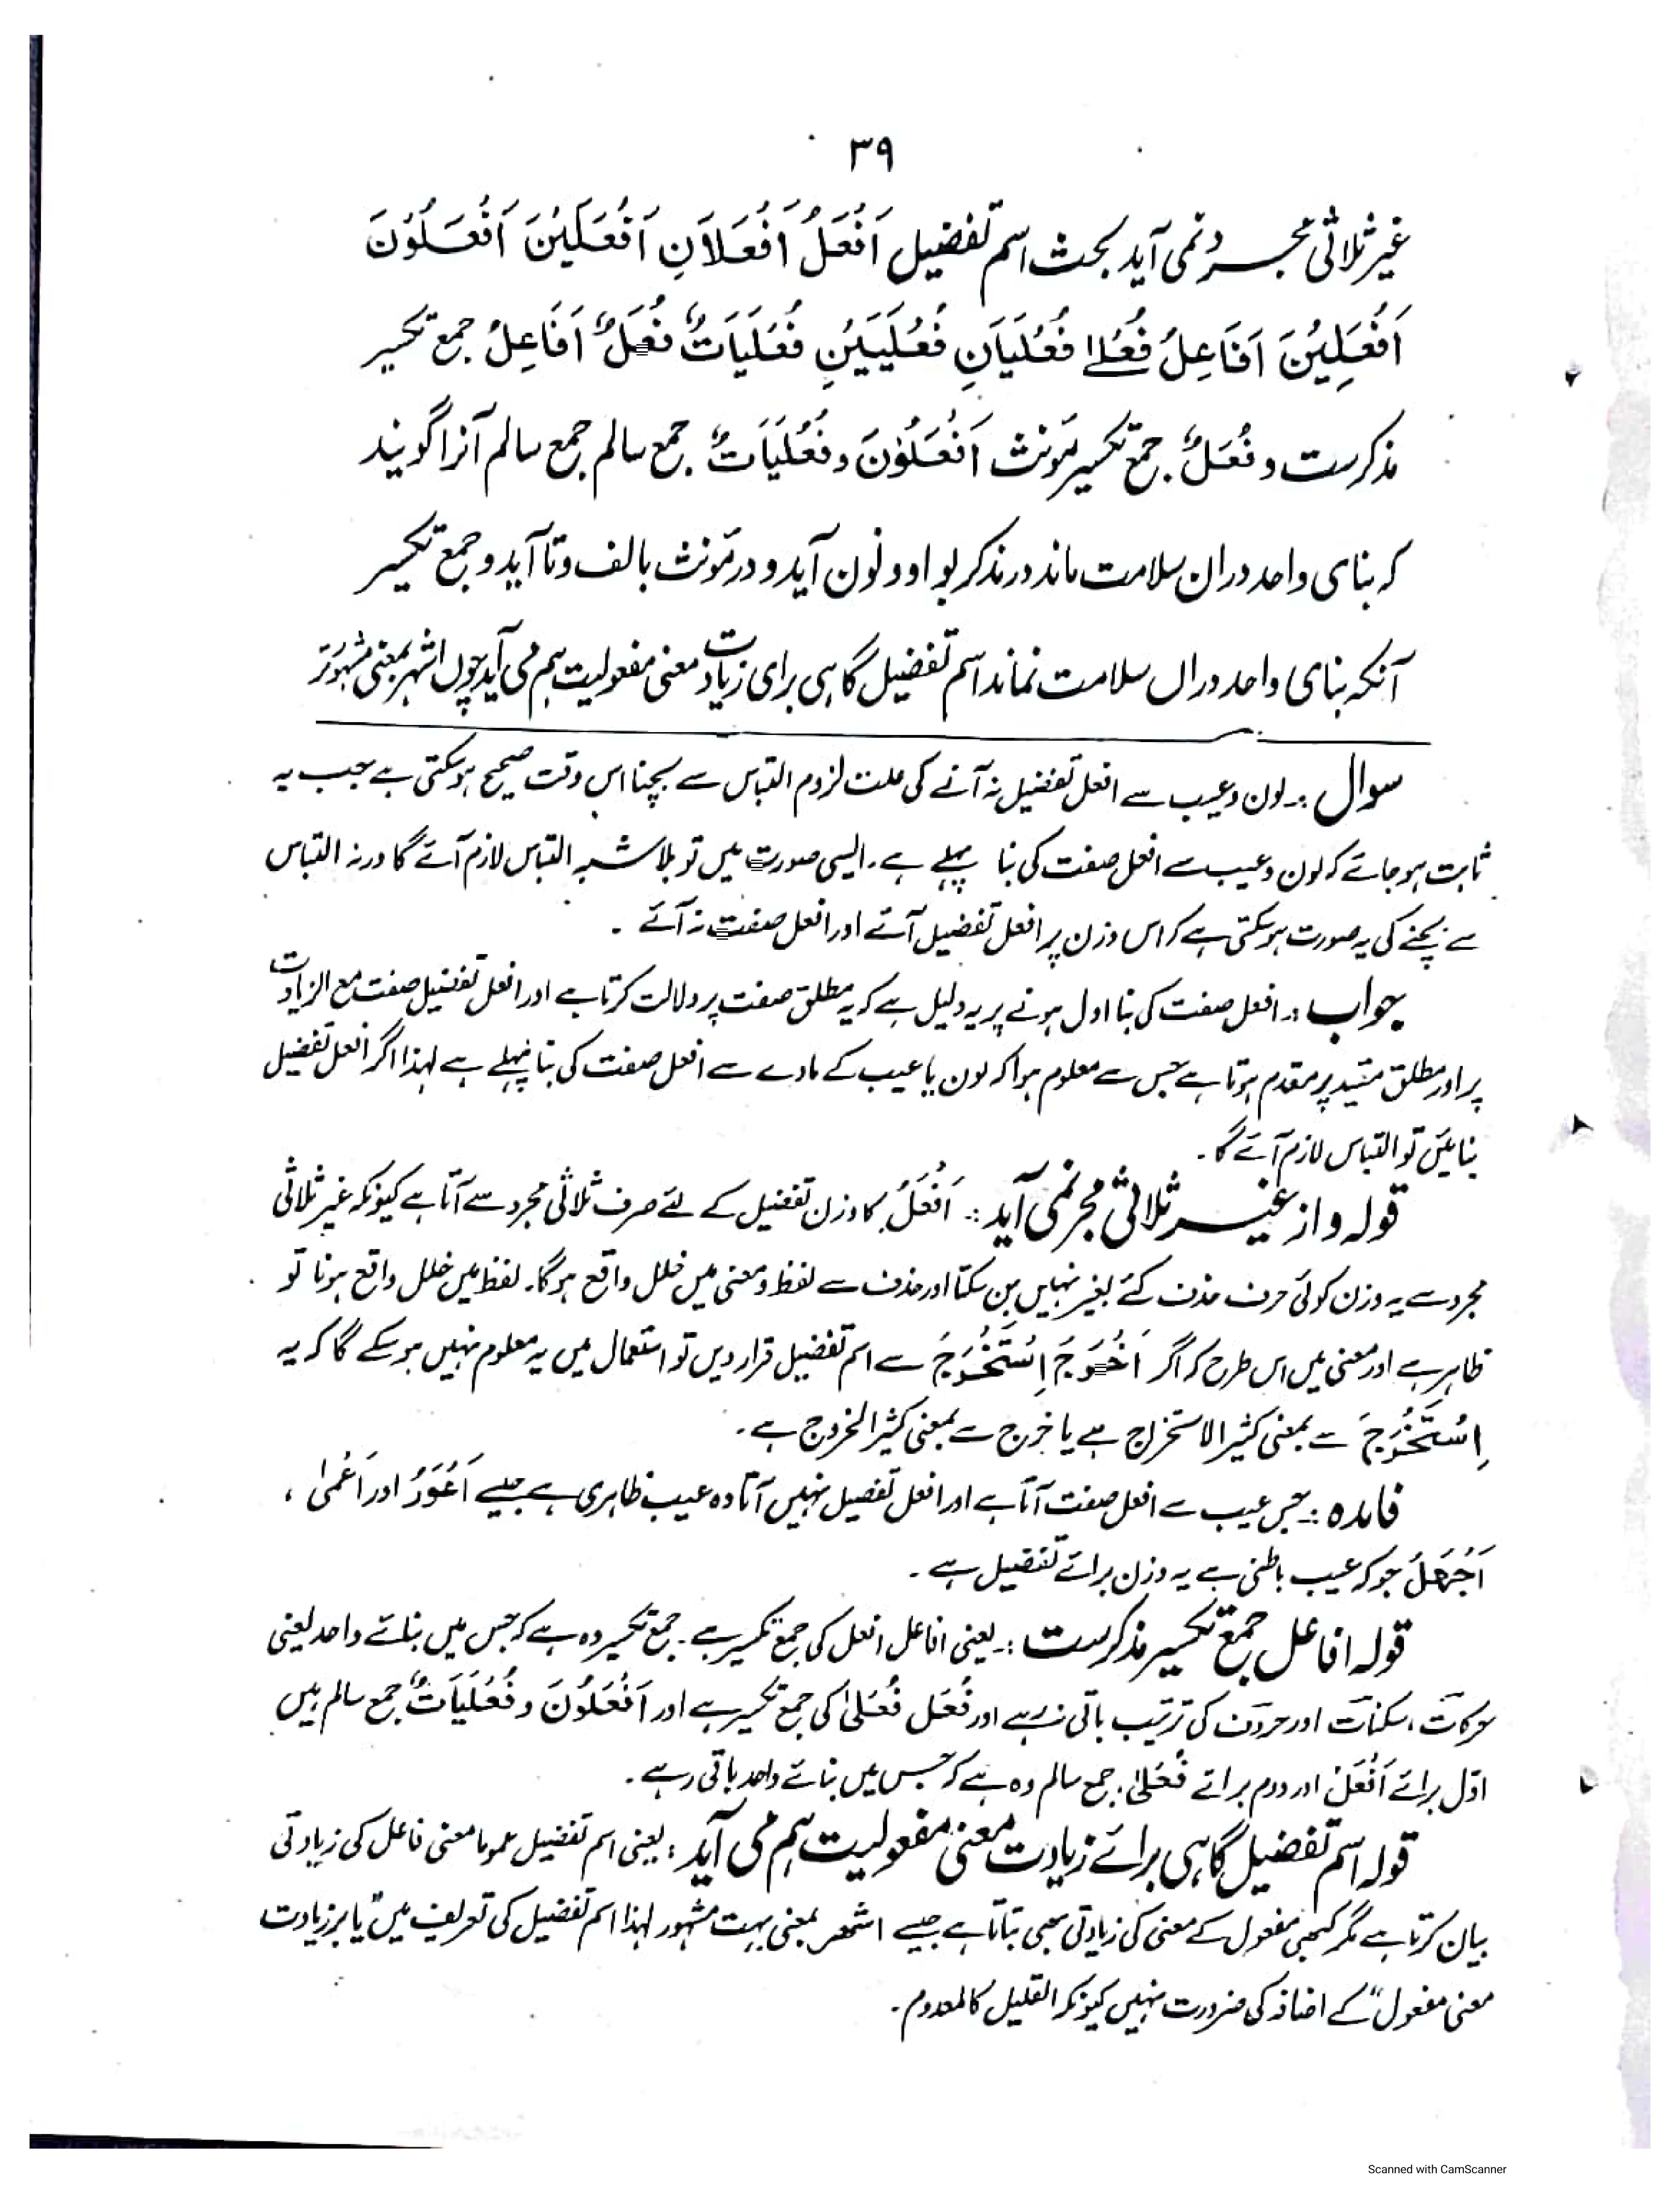 ۳۹
غیر ثلاثی مجرد نمی آید بحث اسم تفضیل اَفْعَلُ اَفْعَلَانِ اَفْعَلَیْنَ اَفْعَلُوْنَ
اَفْعَلِیْنَ اَفَاعِلُ فُعْلٰے فُعْلَیَانِ فُعْلَیَیْنِ فُعْلَیَاتٌ فُعَلٌ اَفَاعِلُ جمع تکسیر
مذکرست و فُعَلٌ جمع تکسیر مؤنث اَفْعَلُوْنَ و فُعْلَیَاتٌ جمع سالم جمع سالم آنرا گویند
کہ بنای واحد دران سلامت ماند در مذکر بواو و نون آید و در مؤنث بالف و تا آید و جمع تکسیر
آنکہ بنای واحد دراں سلامت نماند اسم تفضیل گاہی برای زیادت معنی مفعولیت ہم می آید چوں اشہر بمعنی مشہورتر
سوال :۔ لون و عیب سے افعل تفضیل نہ آنے کی علت لزوم التباس سے بچنا اس وقت صحیح ہوسکتی ہے جب یہ
ثابت ہو جائے کہ لون و عیب سے افعل صفت کی بنا پہلے ہے۔ ایسی صورت میں تو بلا شبہ التباس لازم آئے گا ورنہ التباس
سے بچنے کی یہ صورت ہوسکتی ہے کہ اس وزن پر افعل تفضیل آئے اور افعل صفت نہ آئے ۔
جواب :۔ افعل صفت کی بنا اول ہونے پر یہ دلیل ہے کہ یہ مطلق صفت پر دلالت کرتا ہے اور افعل تفضیل صفت مع الزیادت
پر اور مطلق مقید پر مقدم ہوتا ہے جس سے معلوم ہوا کہ لون یا عیب کے مادے سے افعل صفت کی بنا پہلے ہے لہذا اگر افعل تفضیل
بنائیں تو التباس لازم آئے گا۔
قولہ و از غیر ثلاثی مجرد نمی آید :۔ اَفْعَلُ کا وزن تفضیل کے لئے صرف ثلاثی مجرد سے آتا ہے کیونکہ غیر ثلاثی
مجرد سے یہ وزن کوئی حرف حذف کئے بغیر نہیں بن سکتا اور حذف سے لفظ و معنی میں خلل واقع ہوگا۔ لفظ میں خلل واقع ہونا تو
ظاہر ہے اور معنی میں اس طرح کہ اگر اَخْرَجَ اِسْتَخْرَجَ سے اسم تفضیل قرار دیں تو استعمال میں یہ معلوم نہیں ہوسکے گا کہ یہ
اِسْتَخْرَجَ سے بمعنی کثیر الاستخراج ہے یا خرج سے بمعنی کثیر الخروج ہے ۔
فائدہ :۔ جس عیب سے افعل صفت آتا ہے اور افعل تفضیل نہیں آتا وہ عیب ظاہری ہے جیسے اَعْوَرُ اور اَعْمٰی ،
اَجْهَلُ جو کہ عیب باطنی ہے یہ وزن برائے تفضیل ہے ۔
قولہ افاعل جمع تکسیر مذکرست :۔ یعنی افاعل افعل کی جمع تکسیر ہے ۔ جمع تکسیر وہ ہے کہ جس میں بنائے واحد یعنی
حرکات ، سکنات اور حروف کی ترتیب باقی نہ رہے اور فُعَل فُعْلٰی کی جمع تکسیر ہے اور اَفْعَلُوْنَ و فُعْلَیَاتٌ جمع سالم ہیں
اوّل برائے اَفْعَلُ اور دوم برائے فُعْلٰی ، جمع سالم وہ ہے کہ جس میں بنائے واحد باقی رہے ۔
قولہ اسم تفضیل گاہی برائے زیادت معنی مفعولیت ہم می آید : یعنی اسم تفضیل عموما معنی فاعل کی زیادتی
بیان کرتا ہے مگر کبھی مفعول کے معنی کی زیادتی بھی بتاتا ہے جیسے اشھر بمعنی بہت مشہور لہذا اسم تفضیل کی تعریف میں "یا بر زیادت
معنی مفعول" کے اضافہ کی ضرورت نہیں کیونکہ القلیل کالمعدوم ۔
Scanned with CamScanner